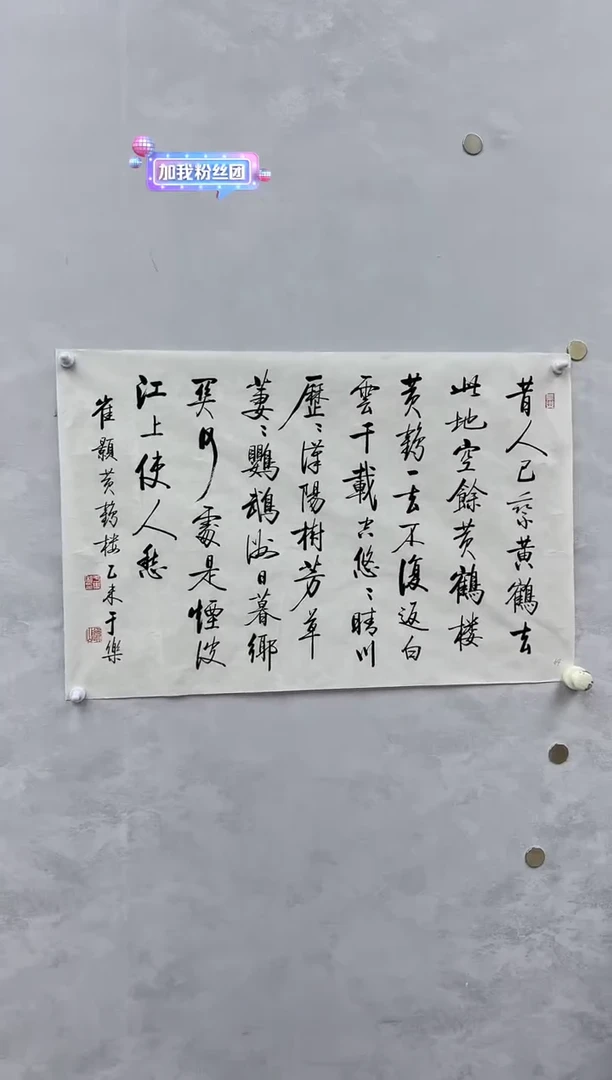 加我粉丝团
昔人已乘黄鶴去
此地空餘黄鶴楼
黄鶴一去不復返白
雲千載空悠〻晴川
歷〻漢陽樹芳草
萋〻鸚鵡洲日暮鄉
関何處是煙波
江上使人愁
崔顥黄鶴楼乙未于樂